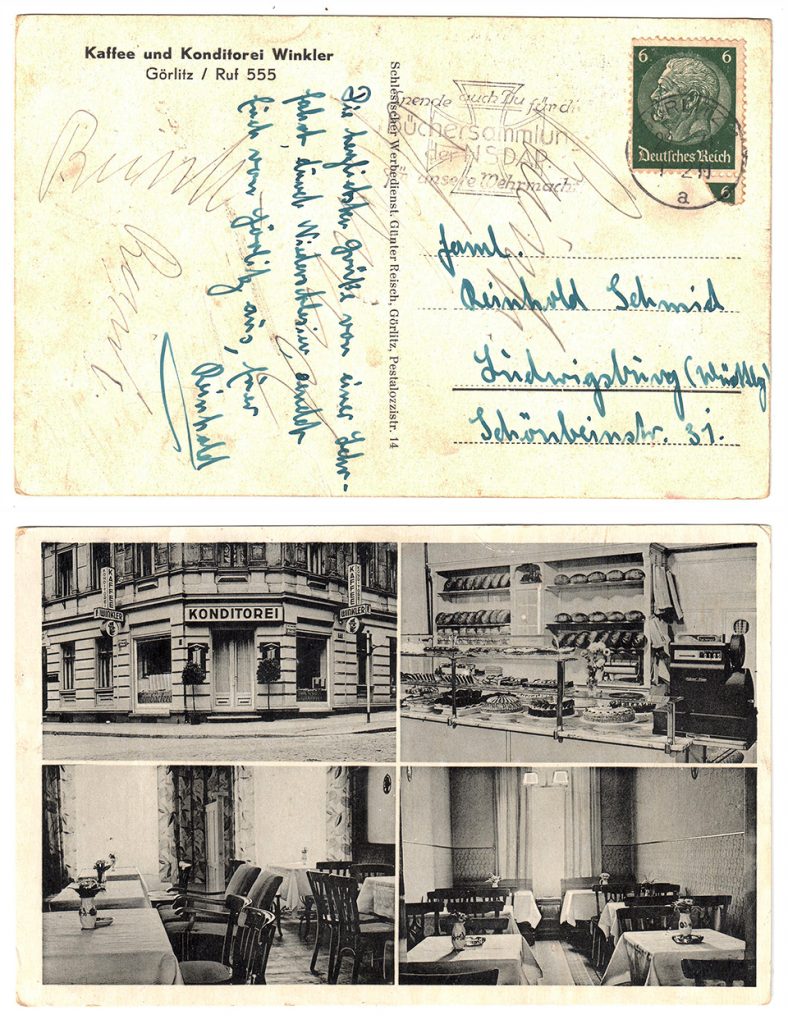 Kaffee und Konditorei Winkler
Görlitz / Ruf 555
Die herzlichsten Grüße von einer Fahr-
fahrt durch Niederschlesien, sendet
Euch von Görlitz aus, Euer
Reinhold
Schlesischer Werbedienst. Günter Reisch, Görlitz, Pestalozzistr. 14
auch Du für die
Büchersammlung
der NSDAP.
für unsere Wehrmacht
6 6
Deutsches Reich
6
a
Faml.
Reinhold Schmid
Ludwigsburg (Württbg)
Schönbeinstr. 31.
KONDITOREI
KAFFEE
WINKLER
KAFFEE
WINKLER